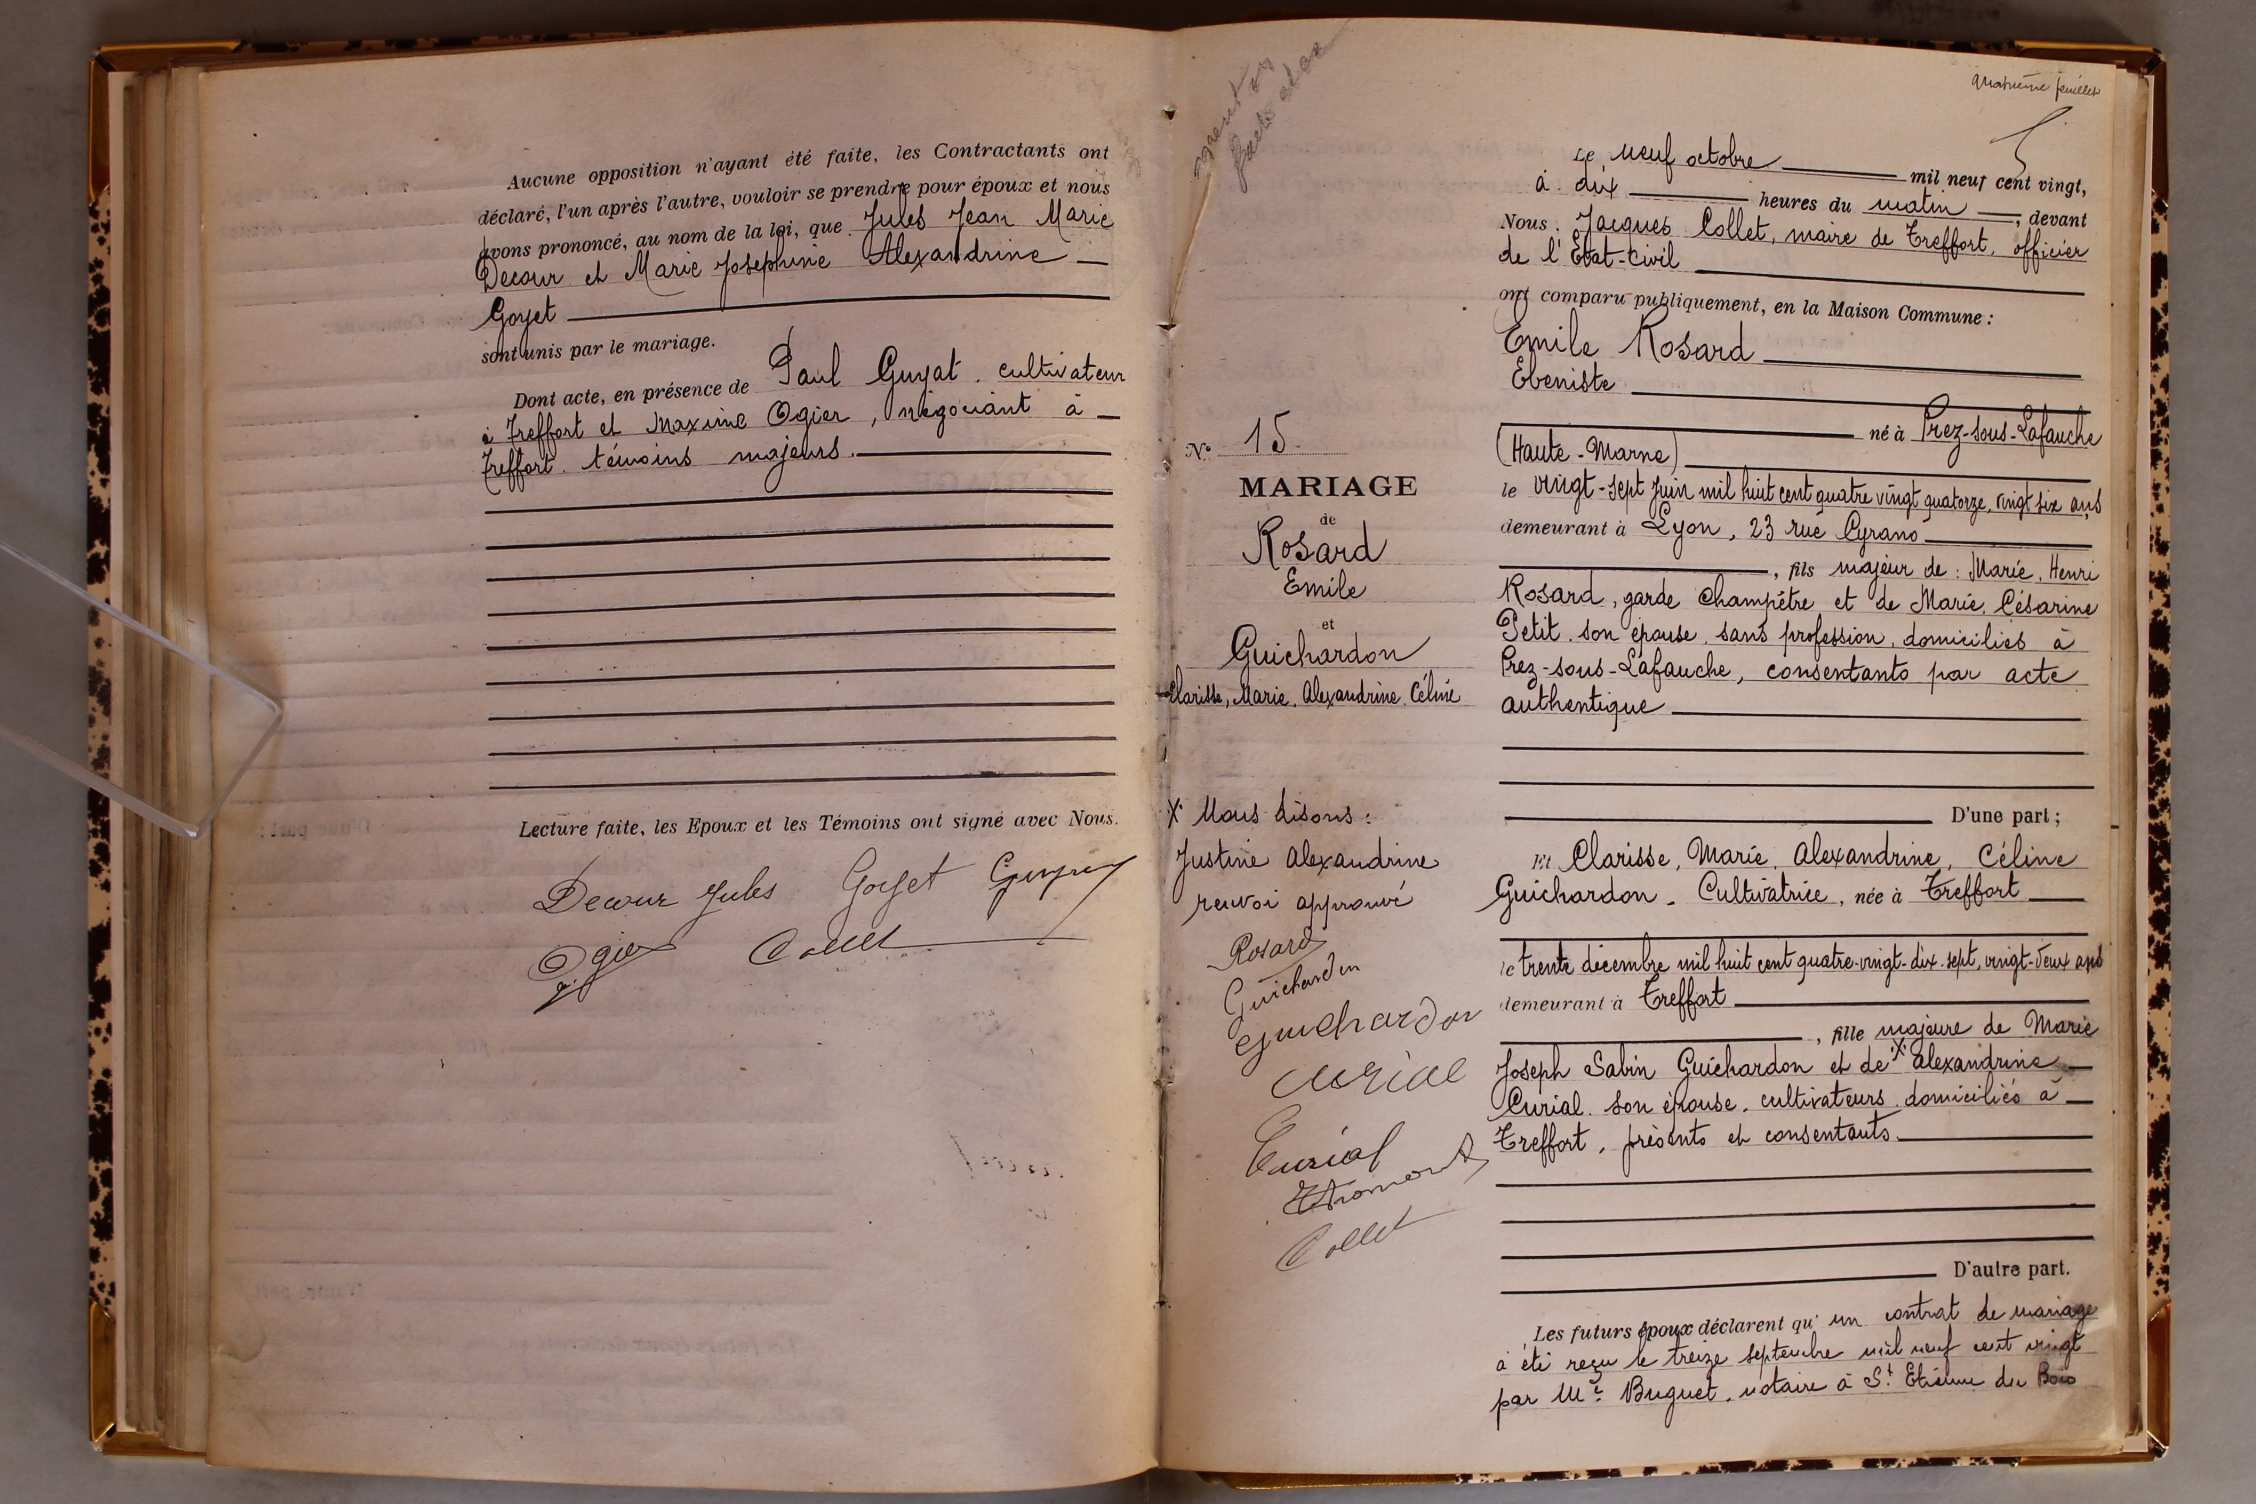 Aucune opposition n'ayant été faite, les Contractants ont
déclaré, l'un après l'autre, vouloir se prendre pour époux et nous
avons prononcé, au nom de la loi, que Jules Jean Marie
Decour et Marie Josephine Alexandrine
Goyet
sont unis par le mariage.
Dont acte, en présence de Paul Guyat, cultivateur
à Treffort et Maxime Ogier, négociant à
Treffort, témoins majeurs.
Lecture faite, les Epoux et les Témoins ont signé avec Nous.
Decour Jules Goyet
Ogier Collet
Quatrième feuillet
Le neuf octobre mil neuf cent vingt,
à dix heures du matin, devant
Nous, Jacques Collet, maire de Treffort, officier
de l'Etat-Civil
ont comparu publiquement, en la Maison Commune :
Emile Rosard
Ebeniste
né à Prez-sous-Lafauche
(Haute-Marne)
le vingt-sept Juin mil huit cent quatre vingt quatorze, vingt six ans
demeurant à Lyon, 23 rue Cyrano
, fils majeur de : Marie, Henri
Rosard, garde champêtre et de Marie, Césarine
Petit, son épouse, sans profession, domiciliés à
Prez-sous-Lafauche, consentants par acte
authentique
D'une part ;
Et Clarisse, Marie, Alexandrine, Céline
Guichardon, Cultivatrice, née à Treffort
le trente décembre mil huit cent quatre-vingt-dix-sept, vingt-deux ans
demeurant à Treffort
, fille majeure de Marie
Joseph Sabin Guichardon et de X Alexandrine
Curial, son épouse, cultivateurs domiciliés à
Treffort, présents et consentants.
D'autre part.
Les futurs époux déclarent qu'un contrat de mariage
a été reçu le treize septembre mil neuf cent vingt
par Me Buguet, notaire à St Etienne du Bois
No 15
MARIAGE
de
Rosard
Emile
et
Guichardon
Clarisse, Marie, Alexandrine, Céline
X Nous disons :
Justine Alexandrine
renvoi approuvé
Rosard
Guichardon
Guichardon
Curial
Curial
Collet